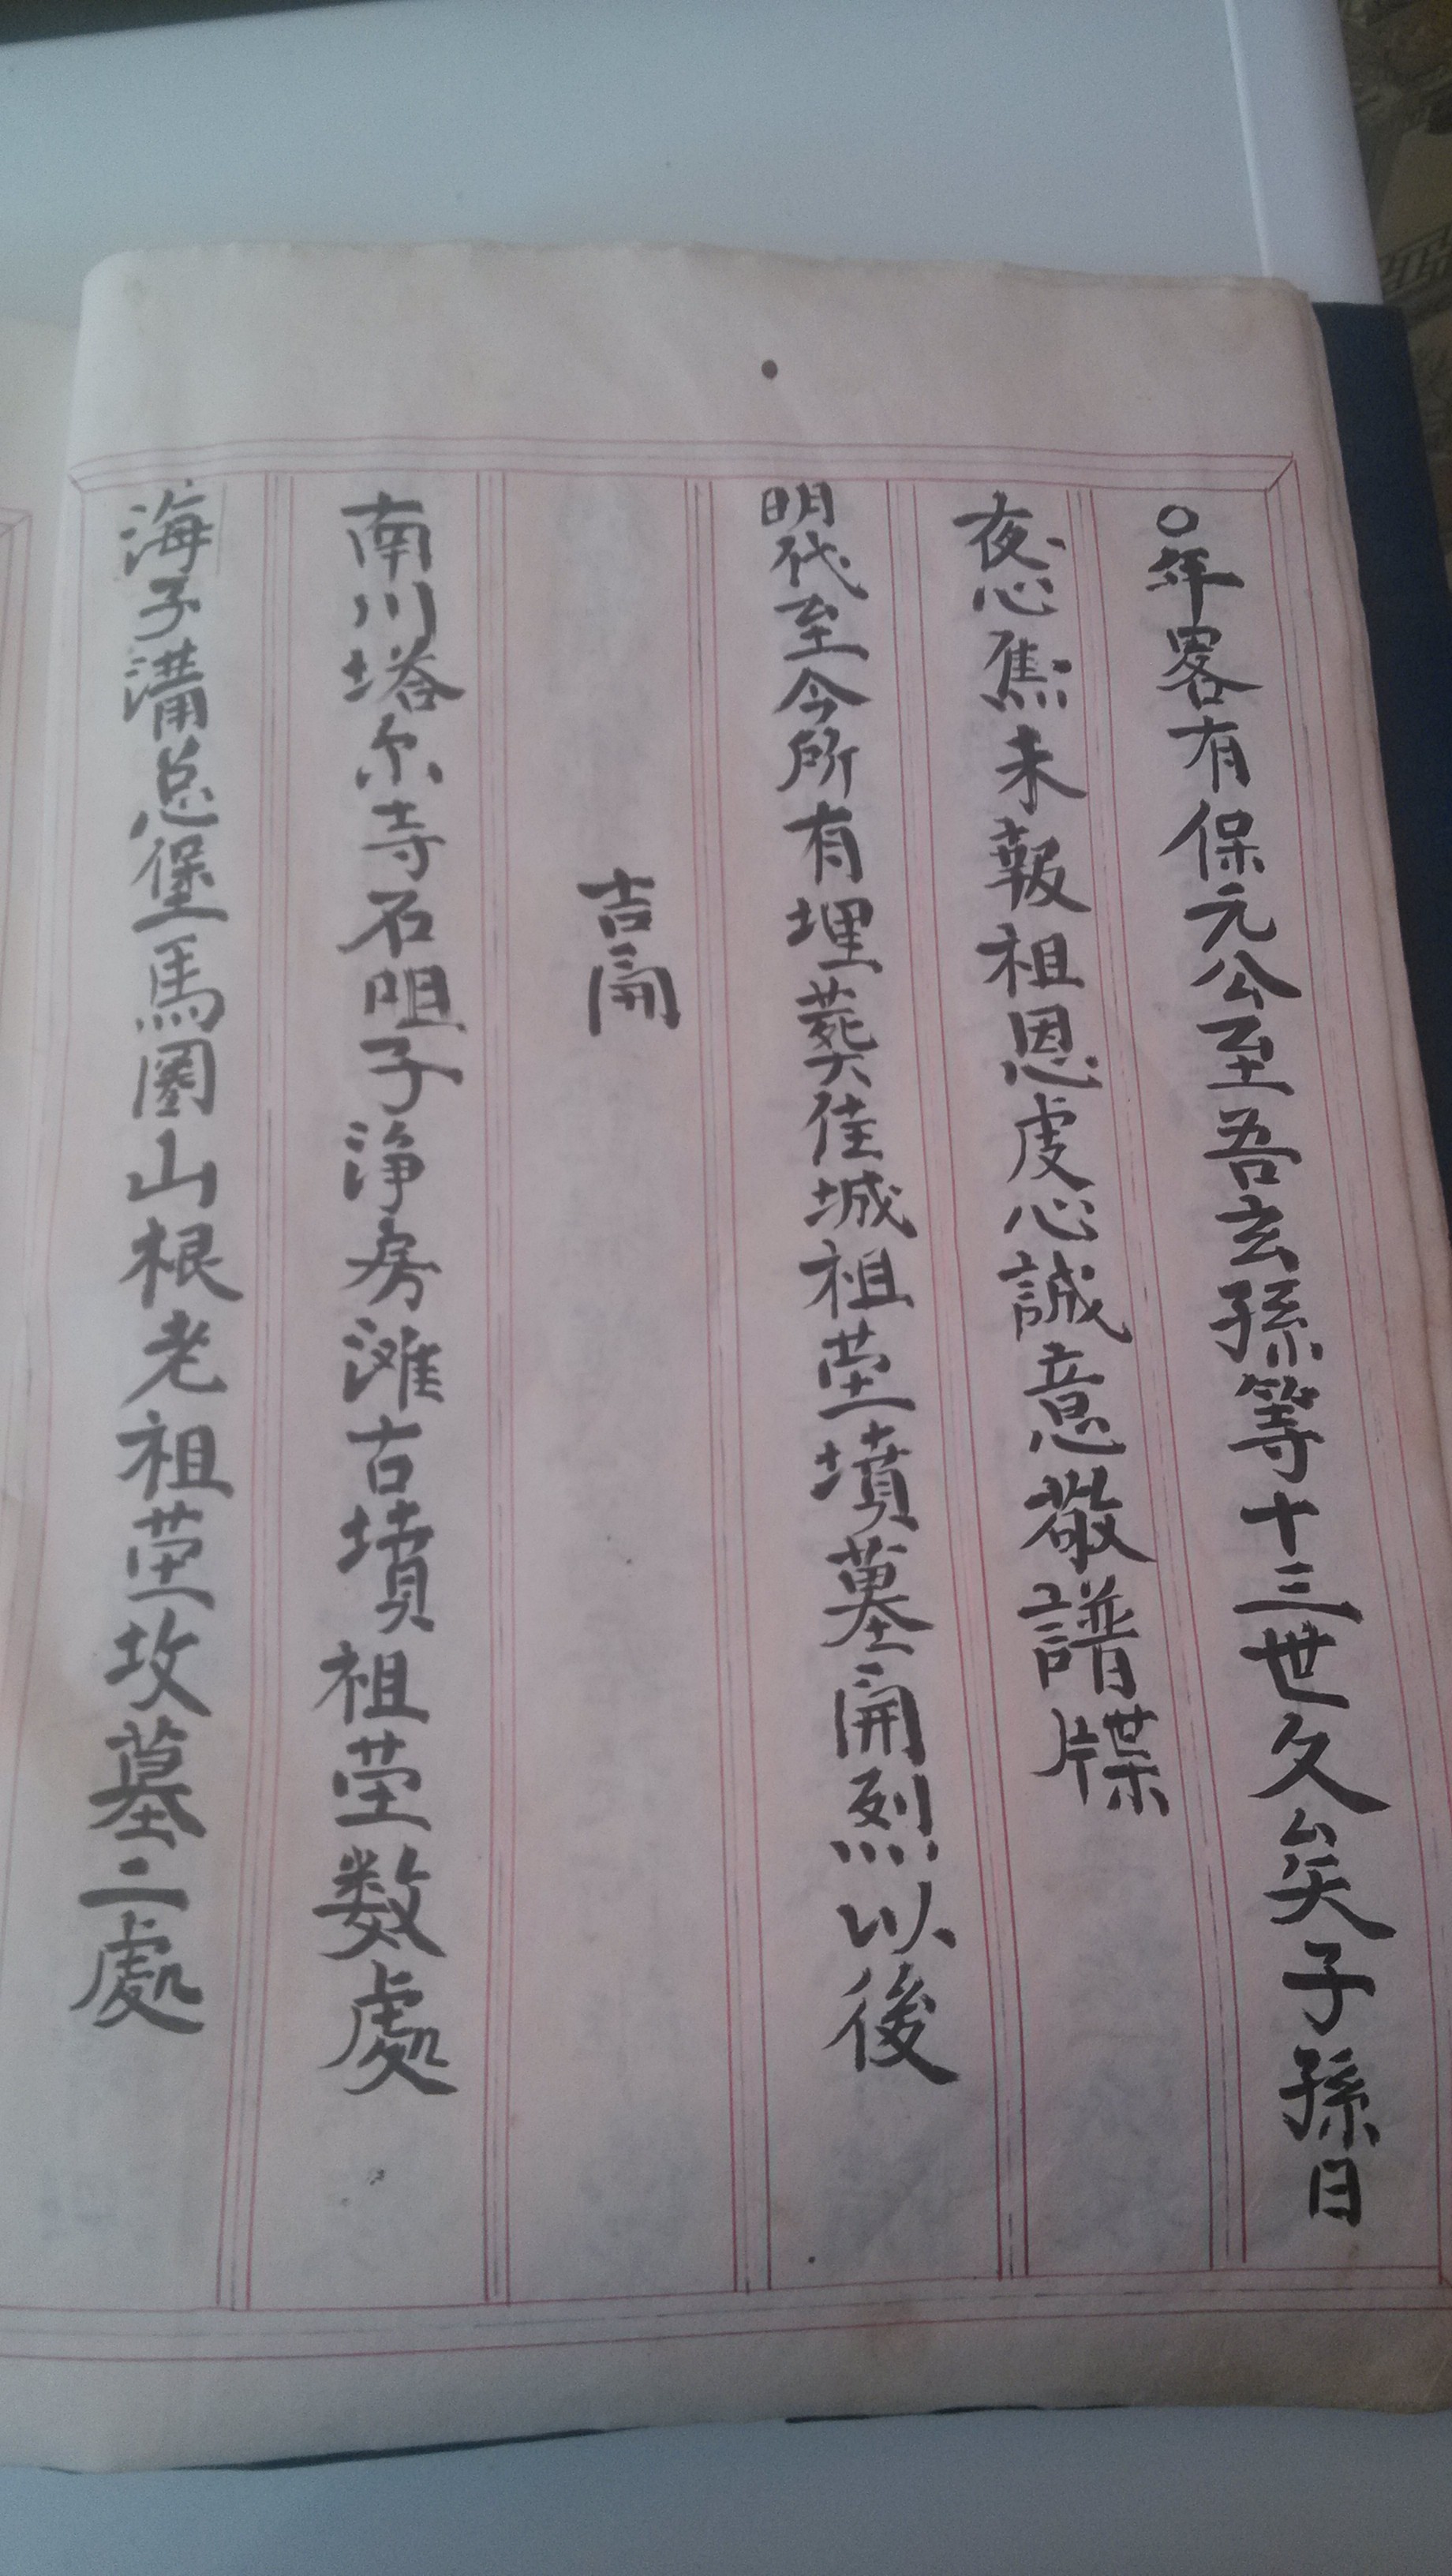 〇年畧有保元公至吾玄孫等十三世久矣子孫日
夜心焦未報祖恩虔心誠意敬譜牒
明代至今所有埋葬佳城祖茔墳墓開烈以後
吉開
南川塔尔寺石咀子浄房滩古墳祖茔数處
海子溝总堡馬圏山根老祖茔坟墓二處